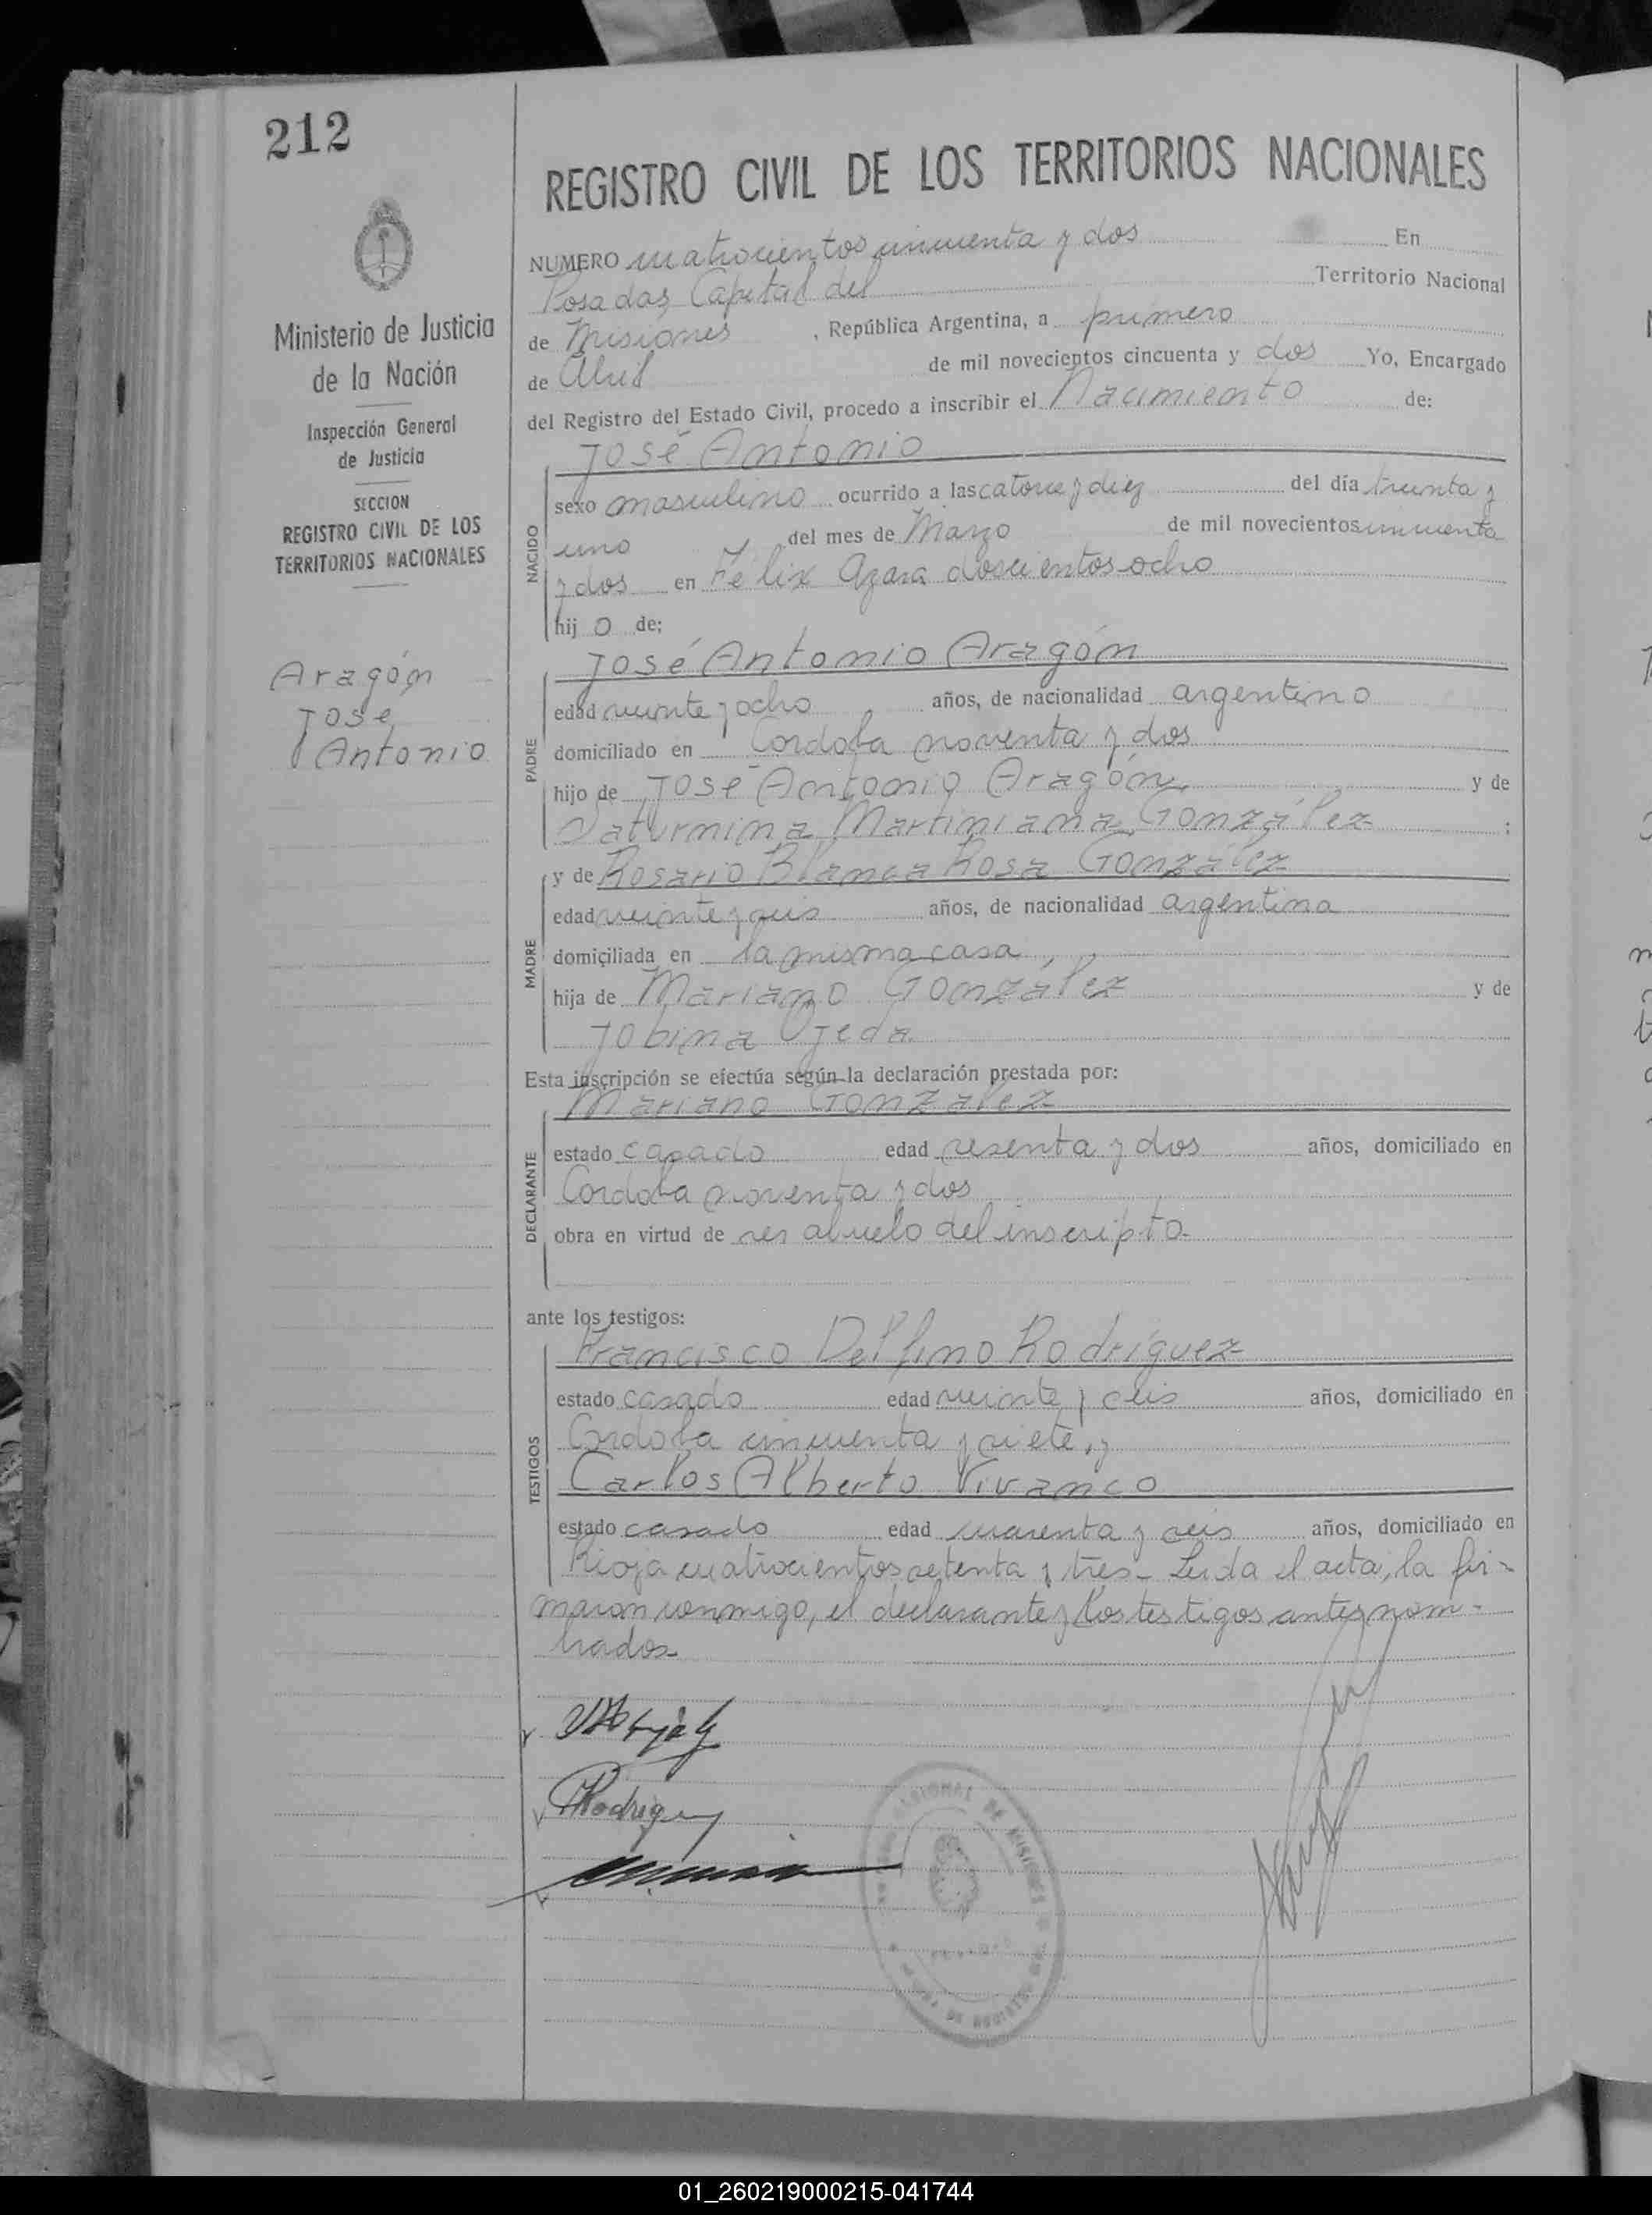 212
Ministerio de Justicia
de la Nación
Inspección General
de Justicia
SECCION
REGISTRO CIVIL DE LOS
TERRITORIOS NACIONALES
Aragón
José
Antonio
REGISTRO CIVIL DE LOS TERRITORIOS NACIONALES
NUMERO cuatrocientos cincuenta y dos En
Posadas, Capital del Territorio Nacional
de Misiones, República Argentina, a primero
de Abril de mil novecientos cincuenta y dos Yo, Encargado
del Registro del Estado Civil, procedo a inscribir el Nacimiento de:
José Antonio
NACIDO
sexo masculino ocurrido a las catorce y diez del día treinta y
uno del mes de Marzo de mil novecientos cincuenta
y dos en Félix Azara doscientos ocho
hijo de:
José Antonio Aragón
PADRE
edad veinte y ocho años, de nacionalidad argentino
domiciliado en Cordoba noventa y dos
hijo de José Antonio Aragón y de
Saturnina Martiniana González ;
MADRE
y de Rosario Blanca Rosa González
edad veinte y seis años, de nacionalidad argentina
domiciliada en la misma casa,
hija de Mariano González y de
Jobina Ojeda.
Esta inscripción se efectúa según la declaración prestada por:
Mariano González
DECLARANTE
estado casado edad sesenta y dos años, domiciliado en
Cordoba noventa y dos
obra en virtud de ser abuelo del inscripto.
ante los testigos:
Francisco Delfino Rodríguez
TESTIGOS
estado casado edad veinte y seis años, domiciliado en
Cordoba cincuenta y siete, y
Carlos Alberto Vivanco
estado casado edad cuarenta y seis años, domiciliado en
Rioja cuatrocientos setenta y tres- Leida el acta, la fir-
maron conmigo, el declarante y los testigos antes nom-
brados-
01_260219000215-041744